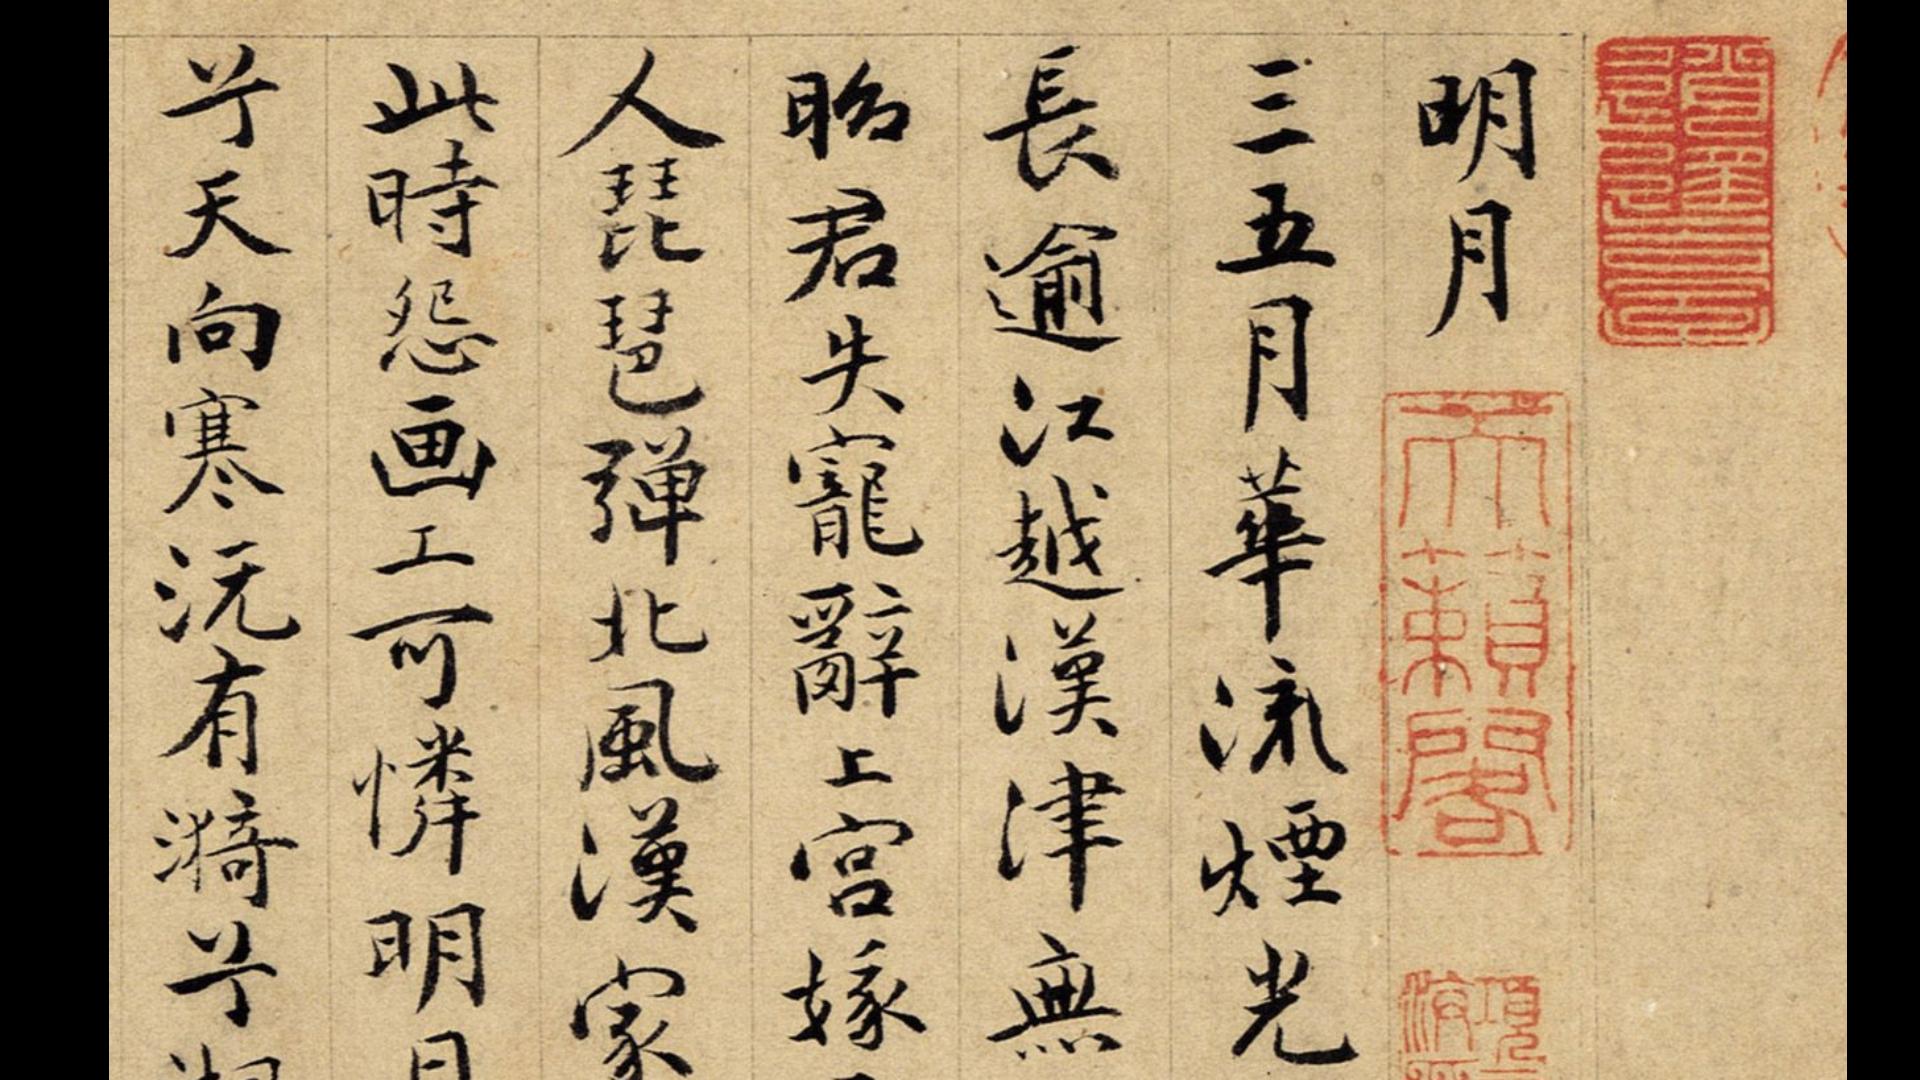 明月
三五月華流煙光
長逾江越漢津無
昭君失寵辭上宮娥
人琵琶彈北風漢家
此時怨画工可憐明
兮天向寒沅有漪兮
天籟閣